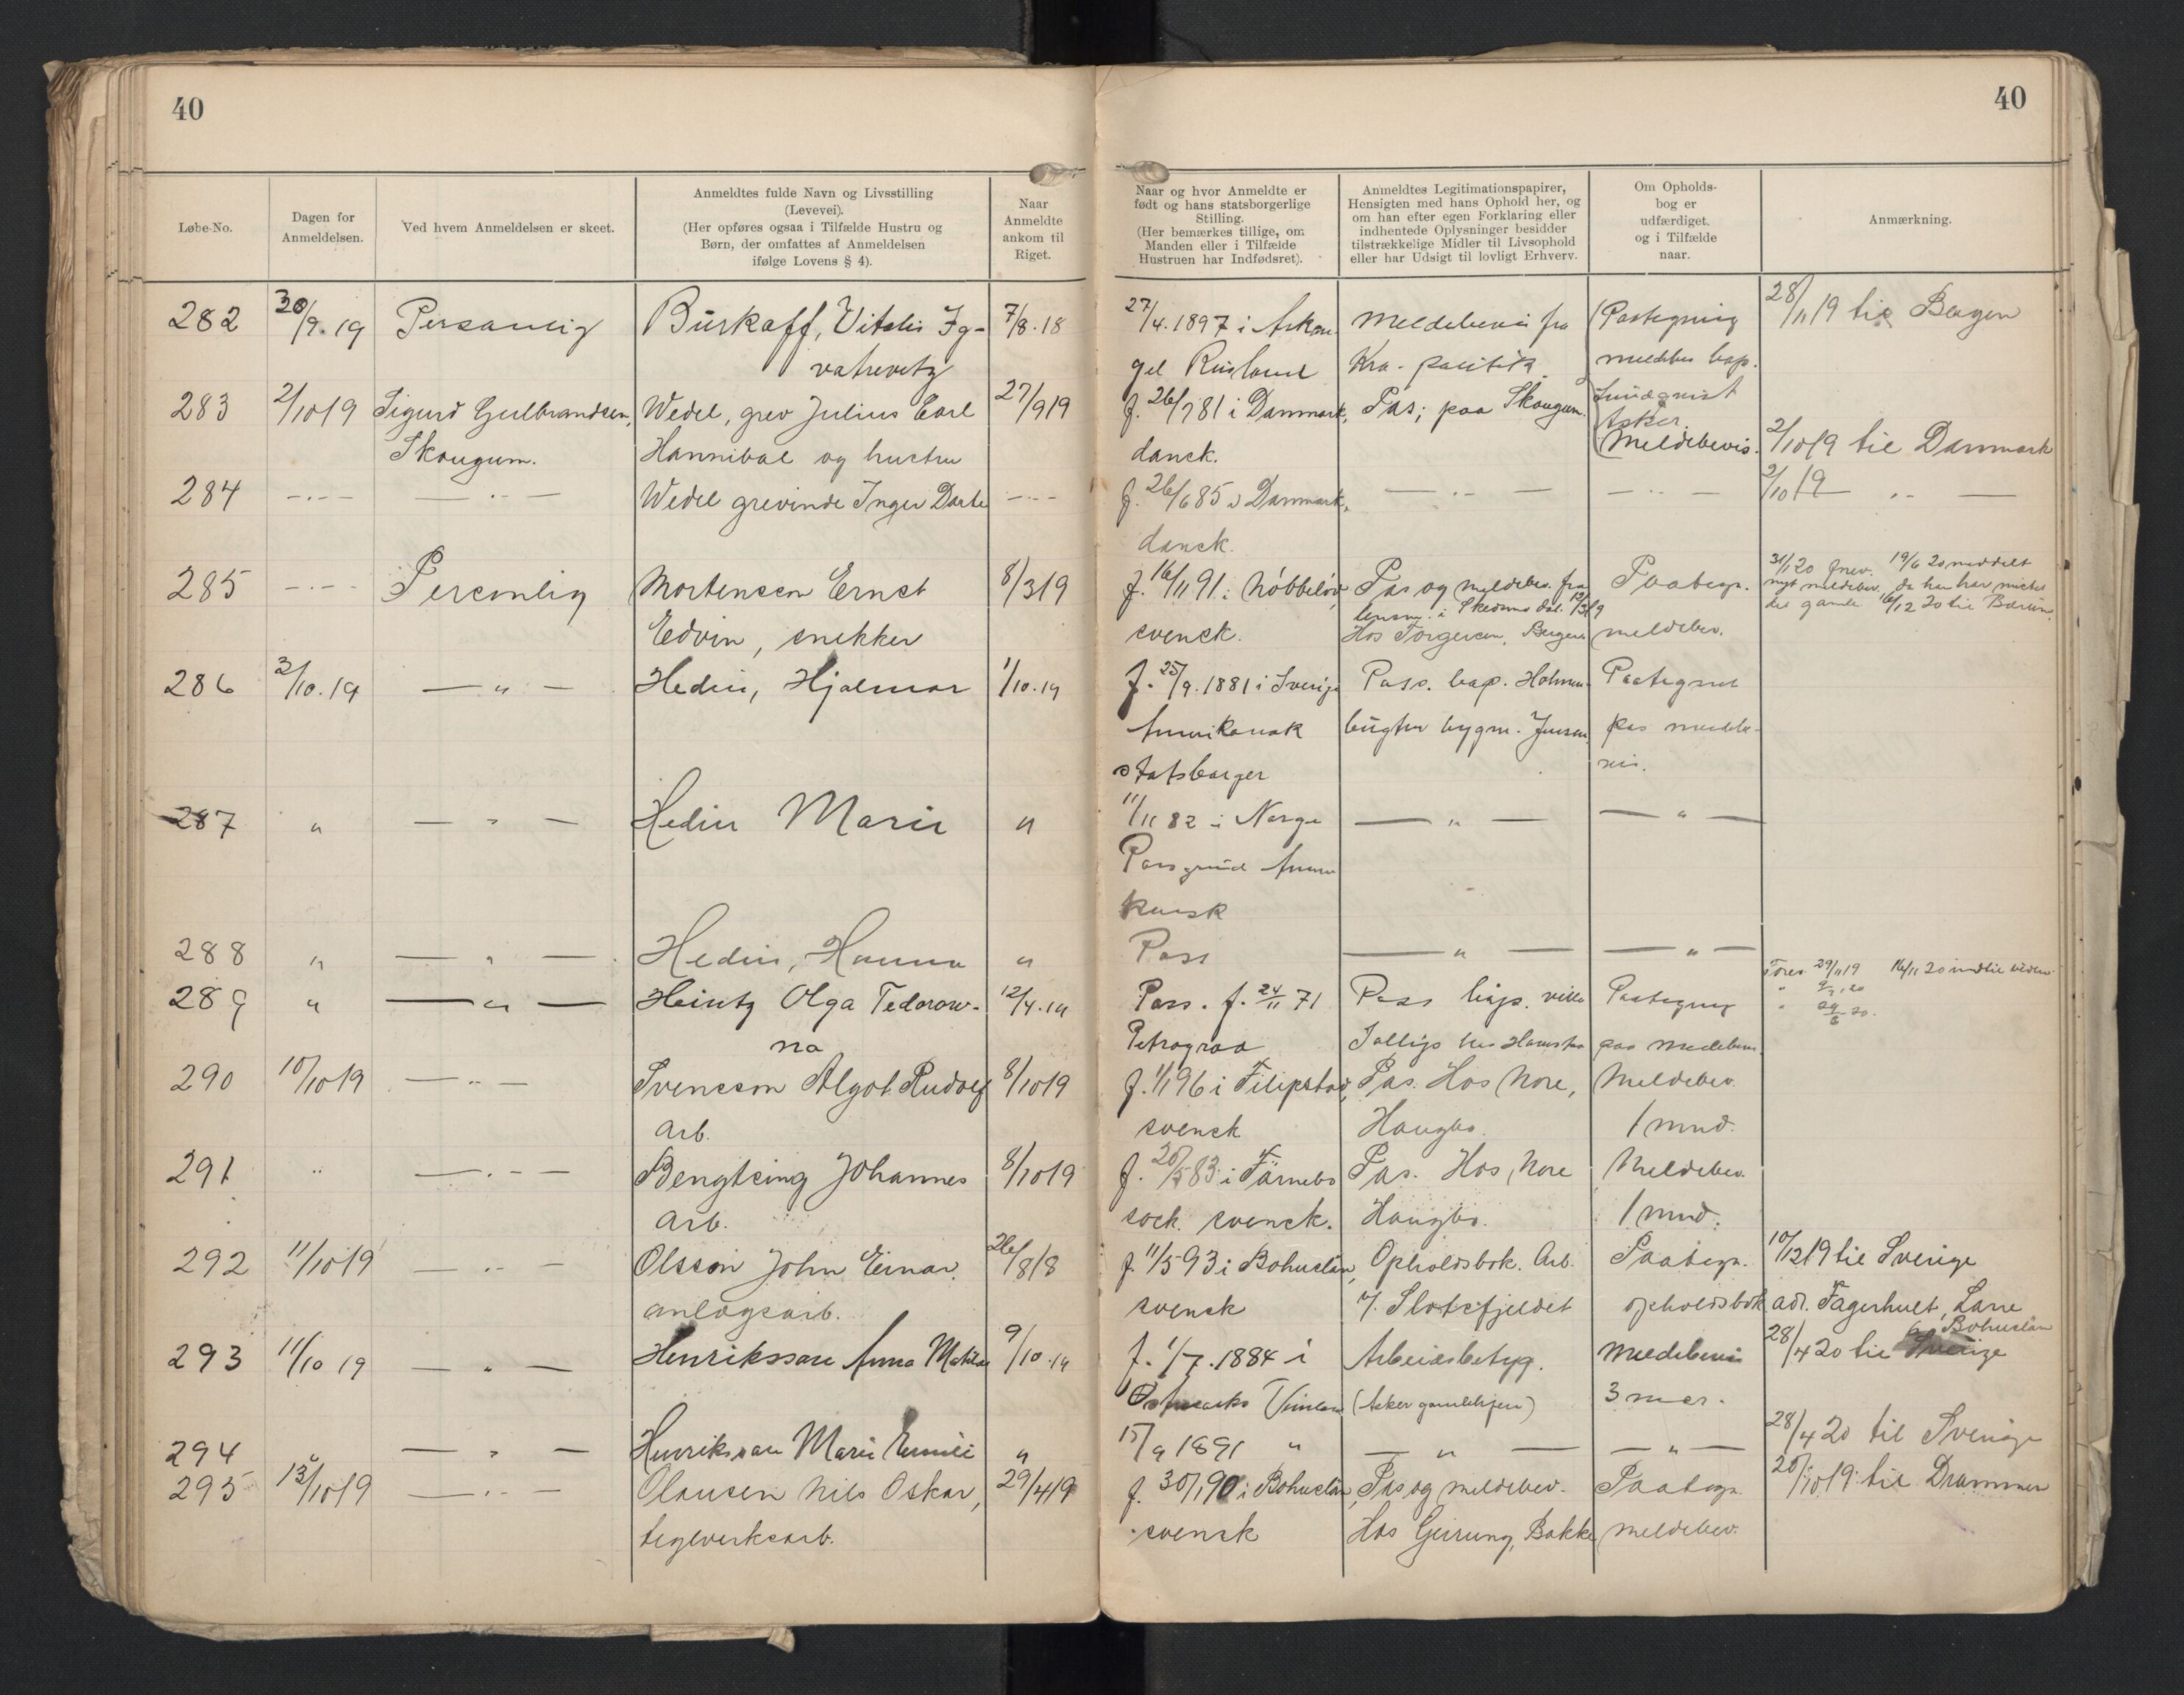 40
40
Løbe-No.
Dagen for
Anmeldelsen.
Ved hvem Anmeldelsen er skeet.
Anmeldtes fulde Navn og Livsstilling
(Levevei).
(Her opføres ogsaa i Tilfælde Hustru og
Børn, der omfattes af Anmeldelsen
ifølge Lovens § 4).
Naar
Anmeldte
ankom til
Riget.
Naar og hvor Anmeldte er
født og hans statsborgerlige
Stilling.
(Her bemærkes tillige, om
Manden eller i Tilfælde
Hustruen har Indfødsret).
Anmeldtes Legitimationspapirer,
Hensigten med hans Ophold her, og
om han efter egen Forklaring eller
indhentede Oplysninger besidder
tilstrækkelige Midler til Livsophold
eller har Udsigt til lovligt Erhverv.
Om Opholds-
bog er
udfærdiget.
og i Tilfælde
naar.
Anmærkning.
282 30/9.19 Personlig Burkoff, Vitalis Ig- 7/8.18 27/4.1897 i Arkan Meldebevis fra Paategning 28/11 19 til Bergen
gel Rusland Kra. politik
283 2/10 19 Sigurd Gulbrandsen, Wedel, grev Julius Carl 27/9 19 f. 26/7 81 i Danmark, Pas; paa Skougum. Lundqvist
Asker
Skougum. Hannibal og hustru dansk. Meldebevis. 2/10 19 til Danmark
284 -"- — " — Wedel grevinde Inger Dorte -"- f. 26/6 85 i Danmark, — " — — " — 2/10 19 — " —
dansk.
285 -"- Personlig Mortensen Ernst 8/3 19 f. 16/11 91 i Nöbbelöv, Pas og meldebev. fra Paategn. 31/1 20 forev. 19/6 20 meddelt
nyt meldebev, da han har mistet
lensm. i Skedsmo
det gamle 16/12 20 til Bærum.
Edvin, snekker svensk. Hos Torgersen, meldebev.
286 3/10.19 — " — Hedin, Hjalmar 1/10.19 f. 25/9.1881 i Sverige Pass. Holmen- Paategnet
Amerikansk bugten bygm. Jensen pas
statsborger
287 " — " — Hedin Marie " 11/11 82 i Norge — " — — " —
Porsgrund
288 " — " — Hedin, Hanna " Pass — " — — " —
289 " — " — Heintz Olga Fedorow- 12/4.19 Pass. f. 24/11 71 Pass villa Paategning Forev 29/11 19
na Petrograd paa
290 10/10 19 — " — Svensson Algot Rudolf 8/10 19 f. 1/1 96 i Filipstad, Pas. Hos Nore, Meldebev.
arb. svensk Haugbo. 1 mnd.
291 " — " — Bengtsing Johannes 8/10 19 f. 20/5 83 i Färnebo Pas. Hos Nore Meldebev.
arb. sock. svensk. Haugbo. 1 mnd.
292 11/10 19 — " — Olsson John Einar, 26/8 18 f. 11/5 93 i Bohuslän, Opholdsbok. Arb. Paategn. 10/12 19 til Sverige
anlægsarb. svensk v. Slotsfjeldet opholdsbok adr. Fagerhult, Lane
Bohuslän
293 11/10 19 — " — Henriksson Anna Matilda 9/10.19 f. 1/7.1884 i Arbeidsbetyg. Meldebevis 28/4 20 til Sverige
Östmarks (Asker gamlehjem) 3 mdr.
294 " — " — Henriksson Marie Emilie " 15/9 1891 " — " — — " — 28/4 20 til Sverige
295 13/10 19 — " — Olausen Nils Oskar, 29/4 19 f. 30/1 90 i Bohuslän, Pas og meldebev. Paategn. 20/10 19 til Drammen
teglverksarb. svensk Hos Bakke meldebev.